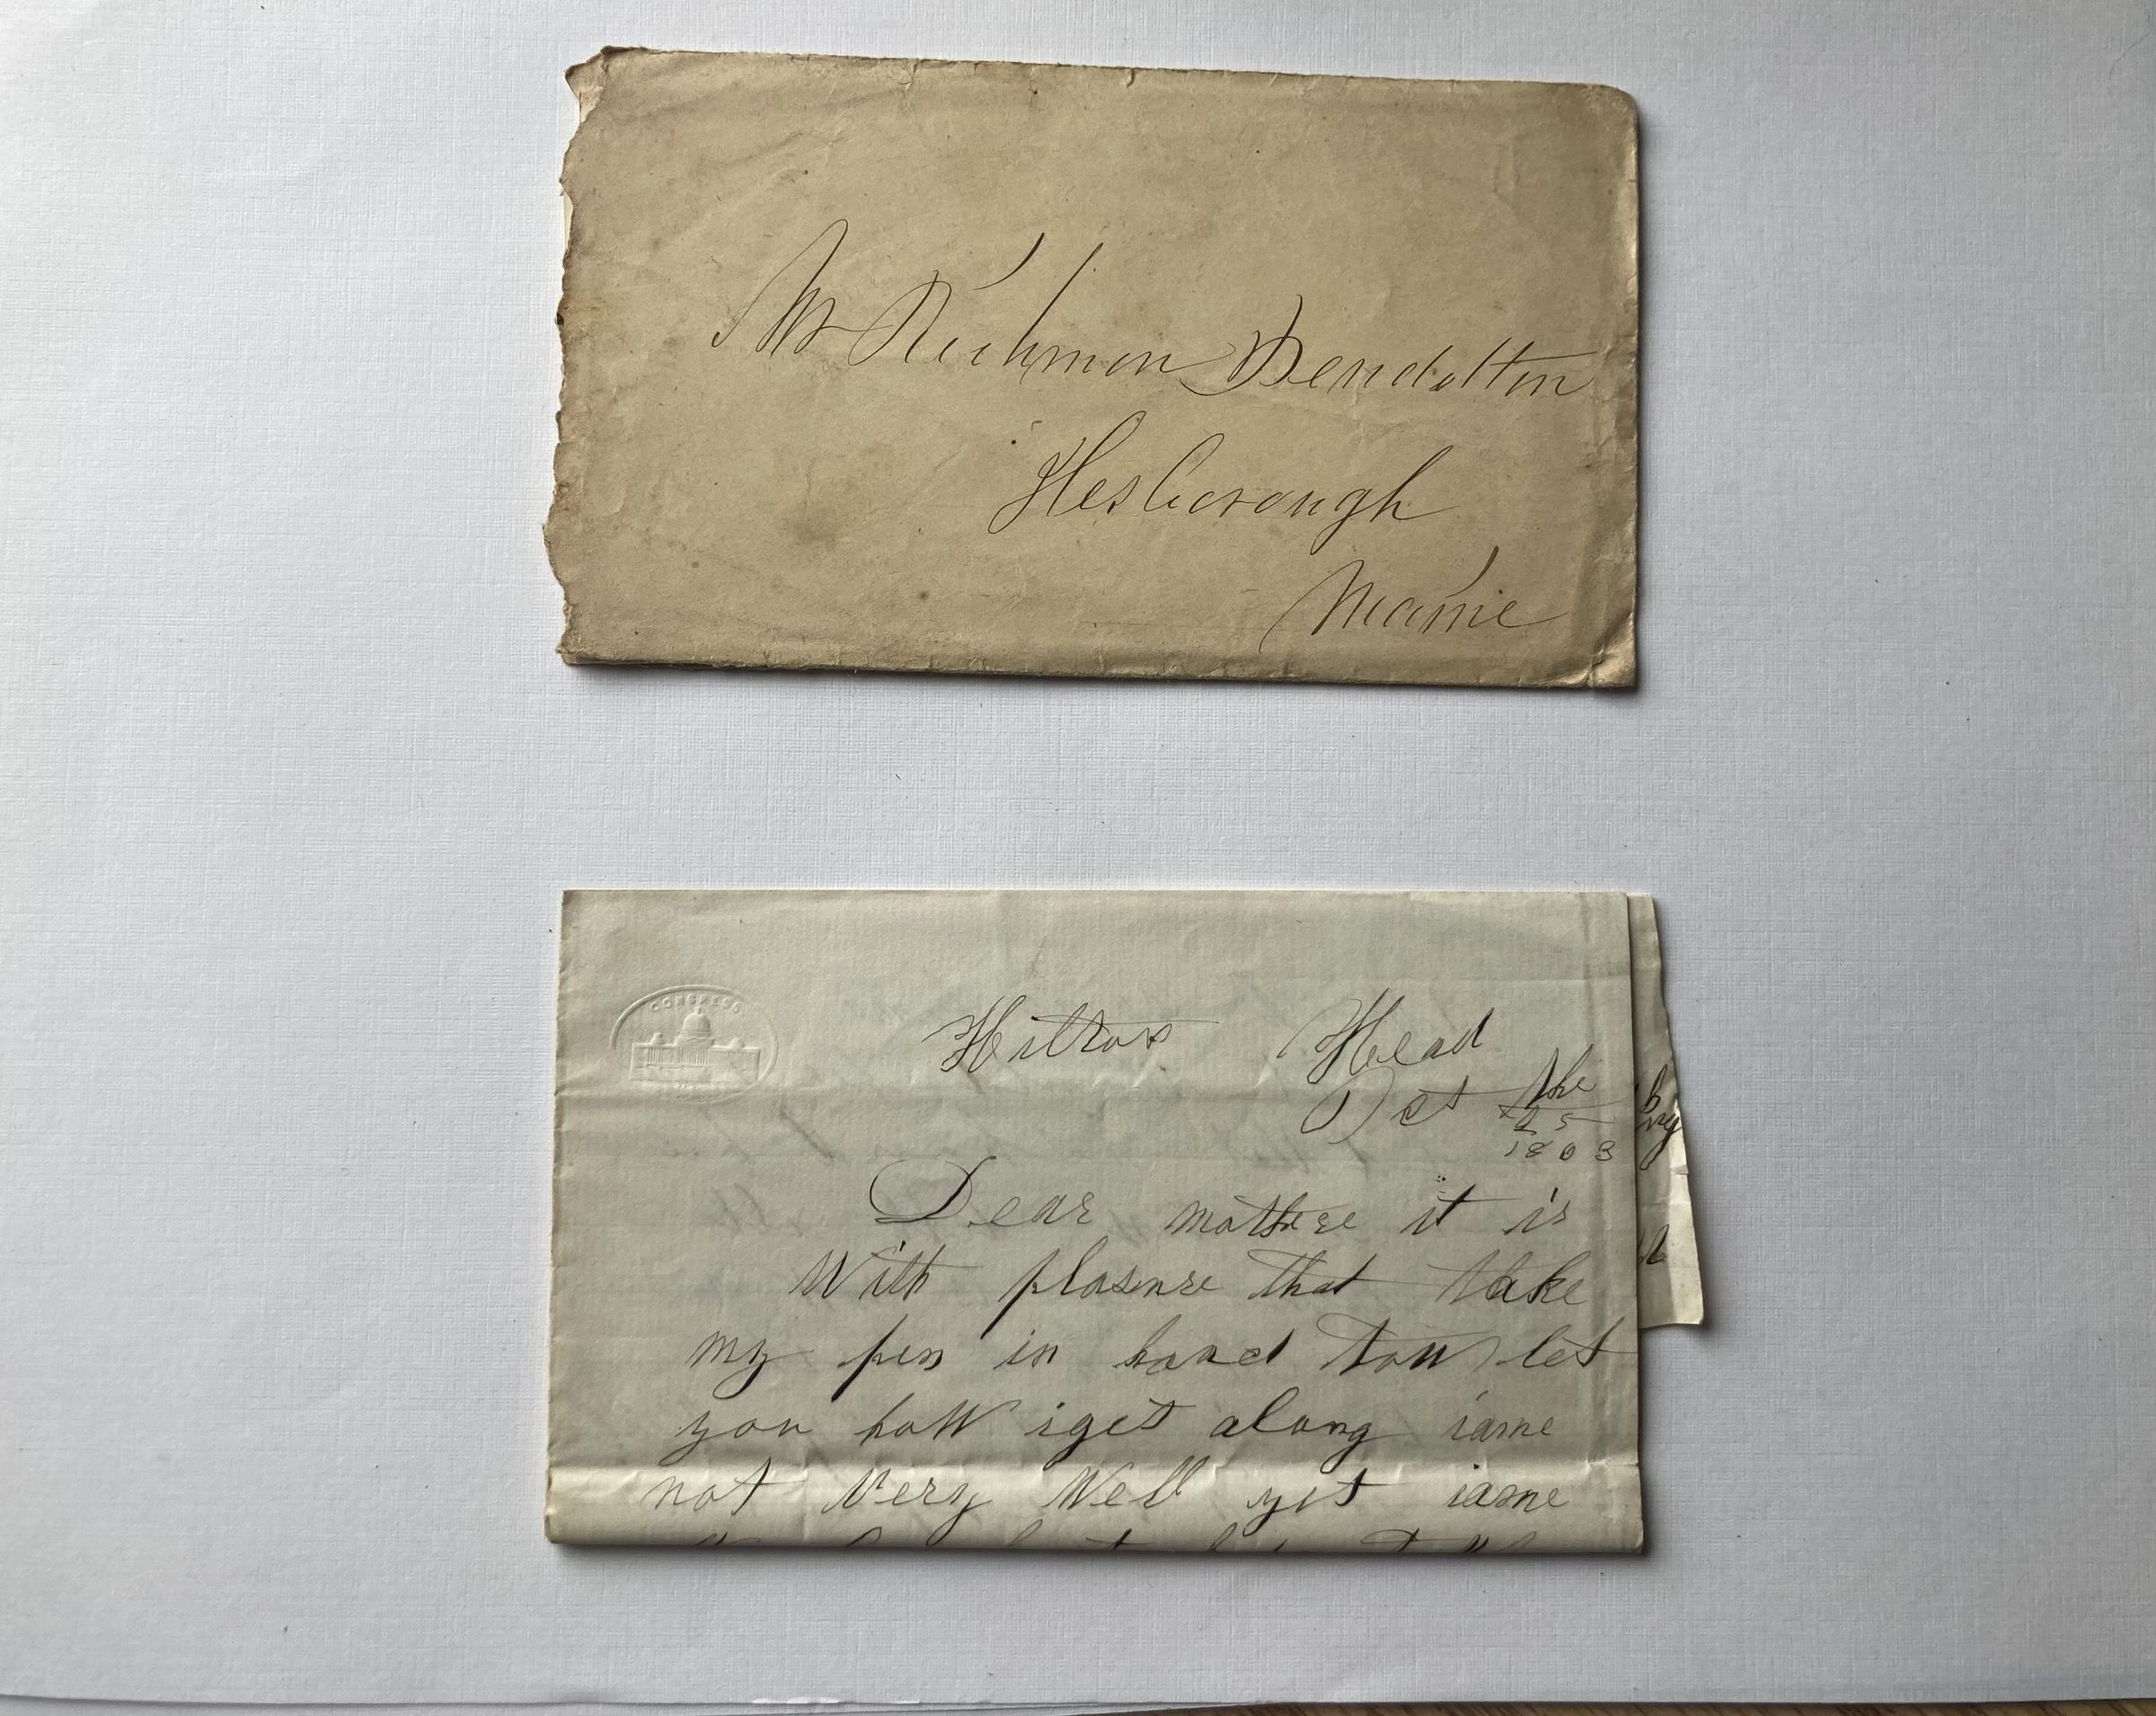 Mr Richmon Pendolton
Hesborough
Maine
CONGRESS
Hilton Head
Oct the
25
1863
Dear mothere it is
With plasure that take
my pen in hand tow let
you how iget along iame
not Very Well yet iame